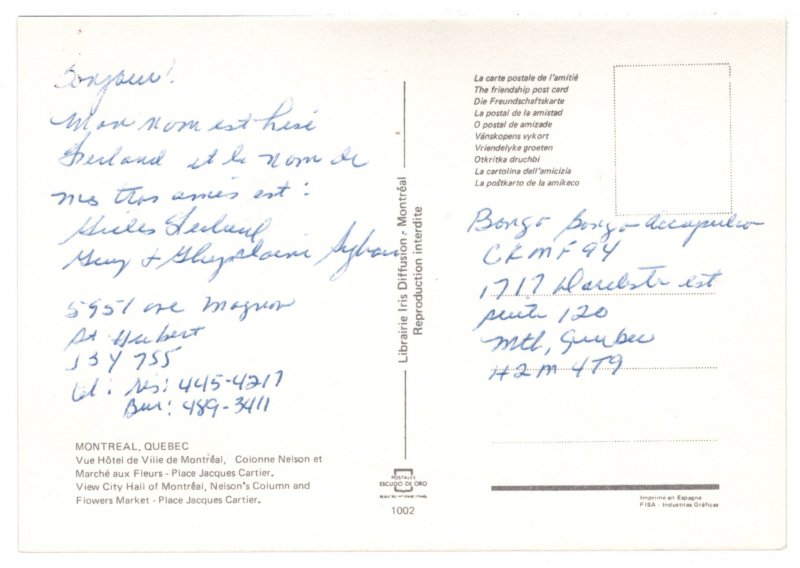 Bonjour!
Mon nom est Lise
Ferland et le nom de
mes trois amies est:
Gilles Ferland
Guy & Ghyslaine Sylvain
5951 ave Magnon
St Hubert
J3Y 7S5
tél: rés: 445-4217
Bur: 489-3411
MONTREAL, QUEBEC
Vue Hôtel de Ville de Montréal, Colonne Nelson et
Marché aux Fleurs - Place Jacques Cartier.
View City Hall of Montréal, Nelson's Column and
Flowers Market - Place Jacques Cartier.
Librairie Iris Diffusion - Montréal
Reproduction interdite
POSTALES
ESCUDO DE ORO
1002
La carte postale de l'amitié
The friendship post card
Die Freundschaftskarte
La postal de la amistad
O postal de amizade
Vänskopens vykort
Vriendelyke groeten
Otkritka druchbi
La cartolina dell'amicizia
La poŝtkarto de la amikeco
Bongo Bongo Accapulco
CKMF 94
1717 est
suite 120
Mtl, Quebec
H2M 4T9
Imprimé en Espagne
FISA - Industrias Gráficas